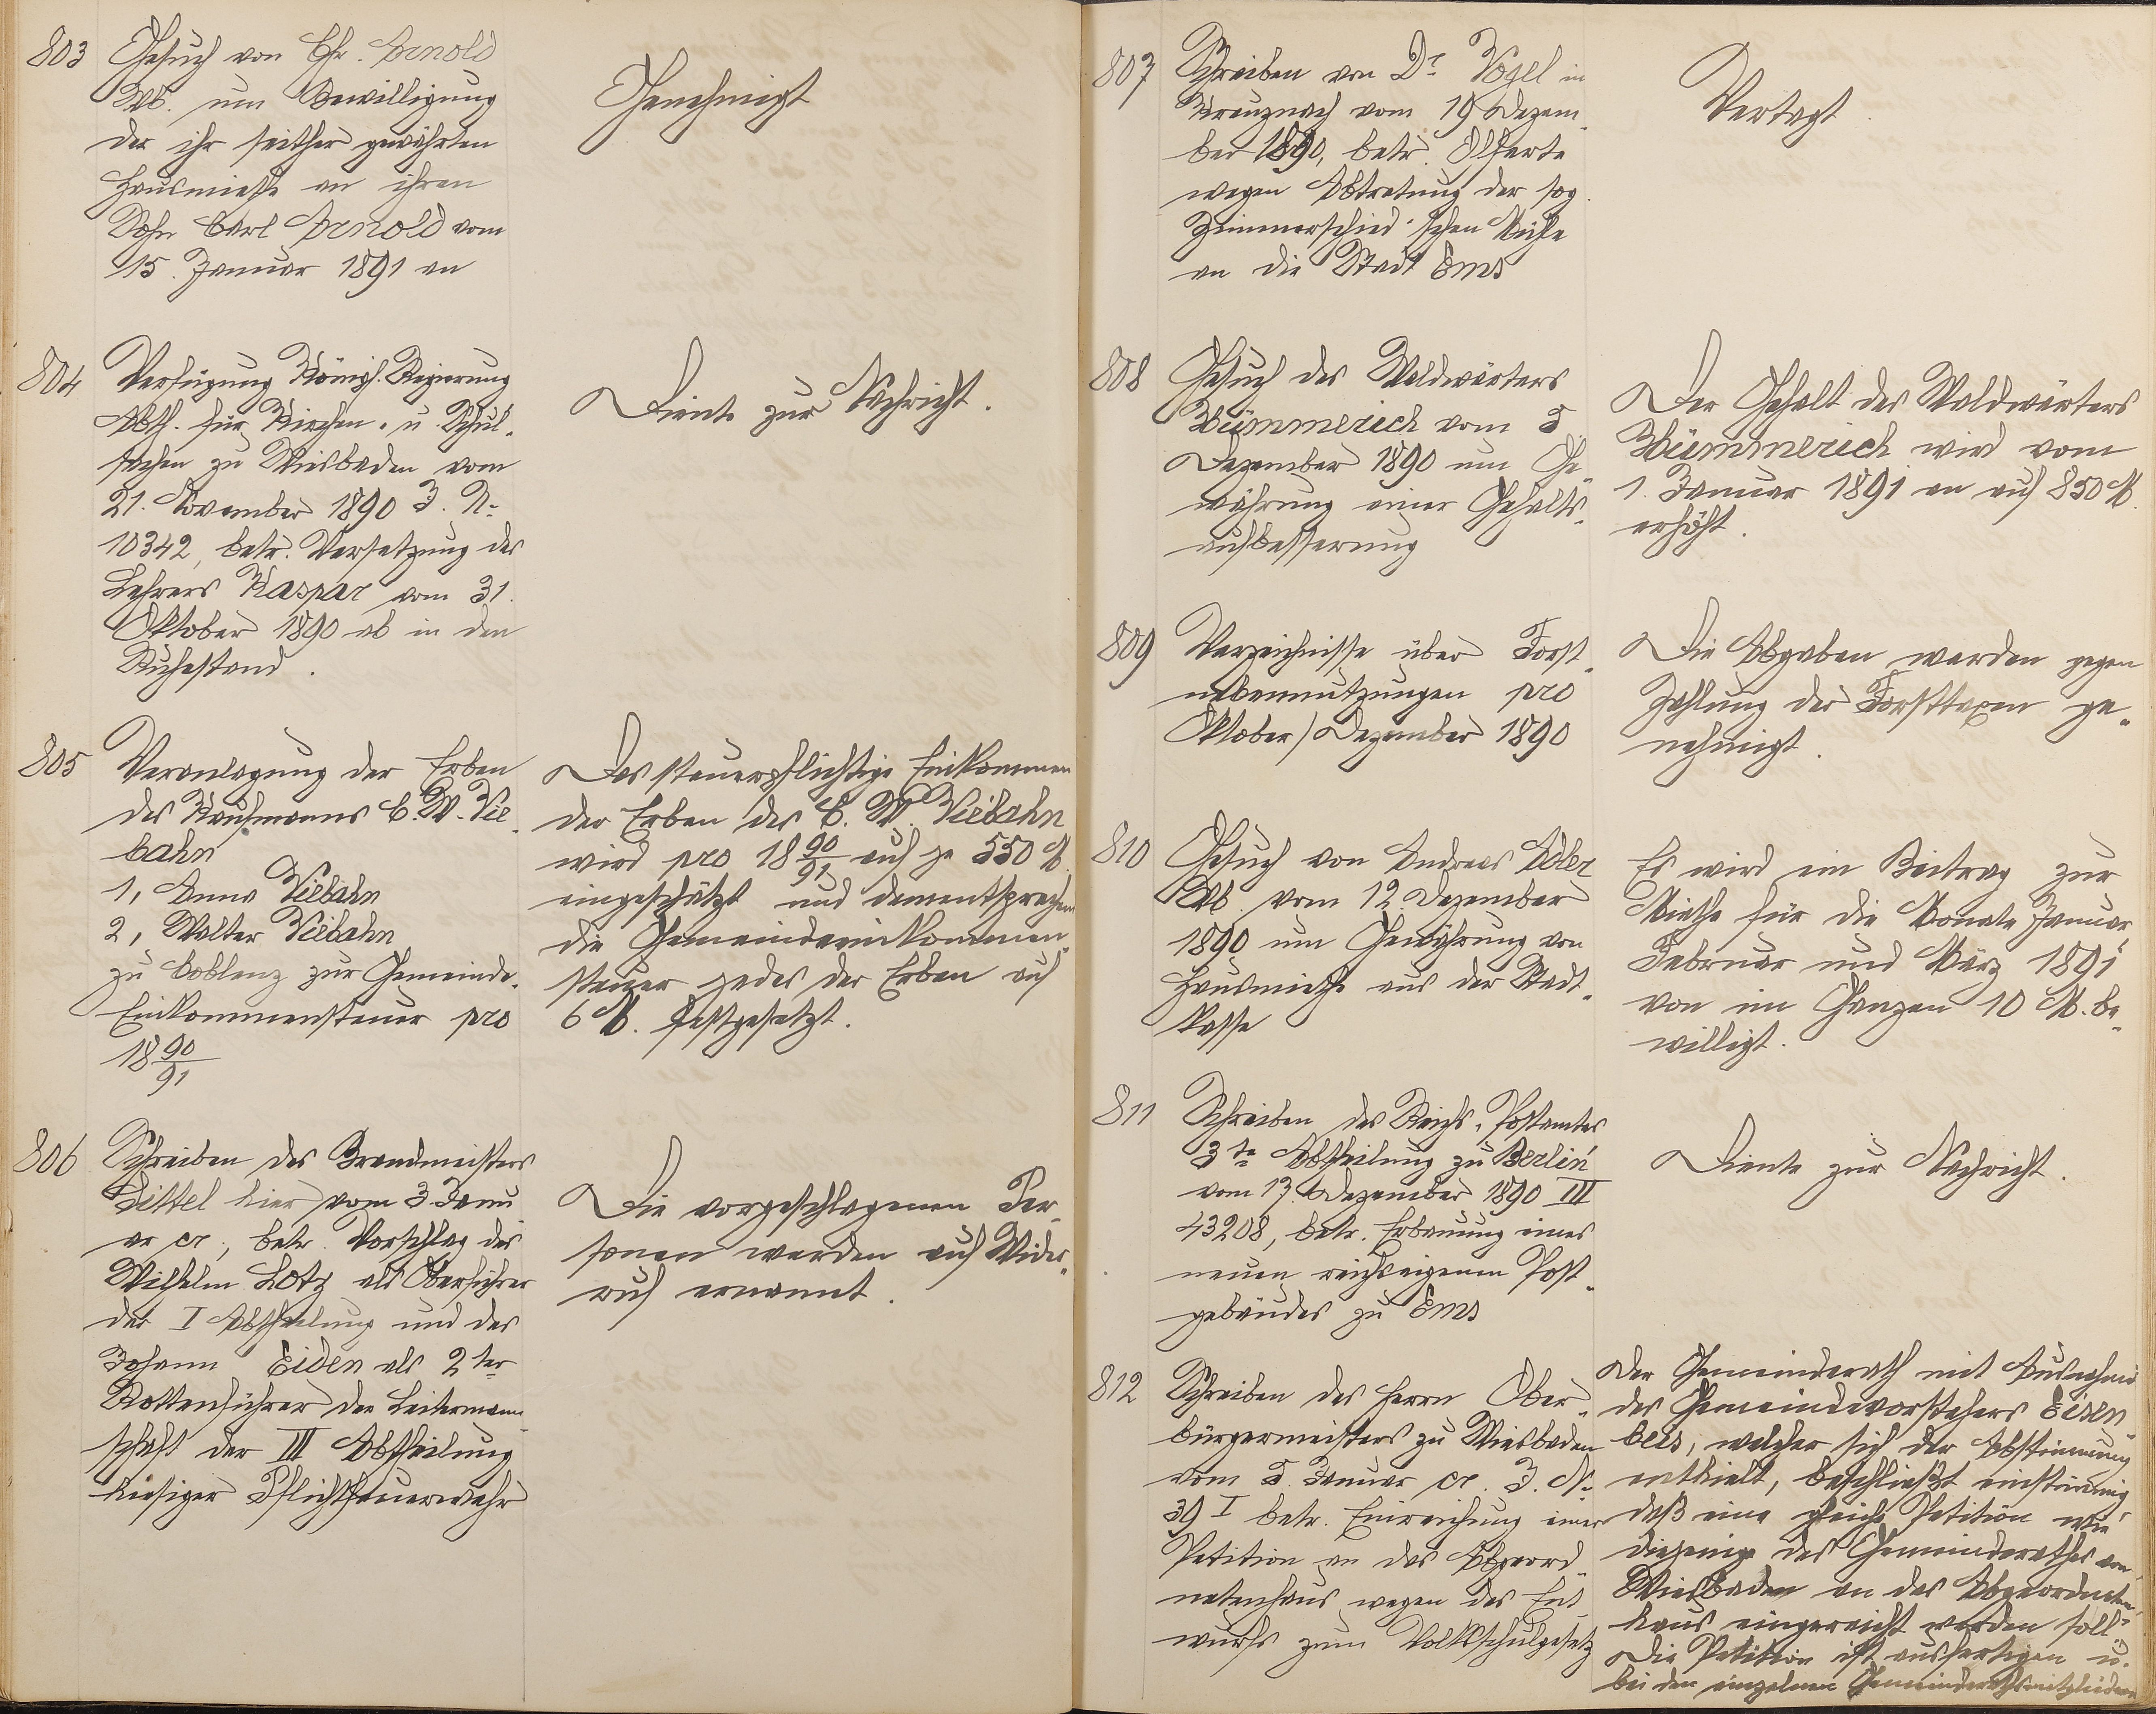 803
Gesuch von Chr. Arnold
Wb. um Bewilligung
der ihr seither gewährten
Hausmiethe an ihren
Sohn Carl Arnold vom
15. Januar 1891 an
Genehmigt
804
Verfügung Königl. Regierung
Abth. für Kirchen- u Schul-
sachen zu Wiesbaden vom
21. November 1890 J. No
10342, betr. Versetzung des
Lehrers Kaspar vom 31.
Oktober 1890 ab in den
Ruhestand.
Diente zur Nachricht.
805
Veranlagung der Erben
des Kaufmanns C. W. Vie-
bahn
1, Anna Viebahn
2, Walter Viebahn
zu Coblenz zur Gemeinde-
Einkommensteuer pro
18 90/91
Das steuerpflichtige Einkommen
der Erben des C. W. Viebahn
wird pro 18 90/91 auf je 550 M.
eingeschätzt und dementsprechend
die Gemeindeeinkommen-
steuer jedes der Erben auf
6 M. festgesetzt.
806
Schreiben des Brandmeisters
Bittel hier vom 3. Janu-
ar cr., betr. Vorschlag des
Wilhelm Lotz als Oberführer
der I Abtheilung und des
Johann Eiden als 2ter
Rottenführer der Leitermann-
schaft der III Abtheilung
hiesiger Pflichtfeuerwehr
Die vorgeschlagenen Per-
sonen werden auf Wider-
ruf ernannt.
807
Schreiben von Dr. Vogel in
Kreuznach vom 19 Dezem-
ber 1890, betr. Offerte
wegen Abtretung der sog.
Zimmerschied'schen Büste
an die Stadt Ems
Vertagt.
808
Gesuch des Waldwärters
Kümmerich vom 5
Dezember 1890 um Ge-
währung einer Gehalts-
aufbesserung
Der Gehalt des Waldwärters
Kümmerich wird vom
1. Januar 1891 an auf 850 M.
erhöht.
809
Verzeichnisse über Forst-
nebennutzungen pro
Oktober/Dezember 1890
Die Abgaben werden gegen
Zahlung der Forsttaxen ge-
nehmigt.
810
Gesuch von Andreas Adler
Wb. vom 12. Dezember
1890 um Gewährung von
Hausmiethe aus der Stadt-
kasse
Es wird ein Beitrag zur
Miethe für die Monate Januar,
Februar und März 1891
von im Ganzen 10 M. be-
willigt.
811
Schreiben des Reichs-Postamtes
3te Abtheilung zu Berlin
vom 17 Dezember 1890 III
43208, betr. Erbauung eines
neuen reichseigenen Post-
gebäudes zu Ems
Diente zur Nachricht.
812
Schreiben des Herrn Ober-
bürgermeisters zu Wiesbaden
vom 5. Januar cr. J. No
39 I betr. Einreichung einer
Petition an das Abgeord-
netenhaus wegen des Ent-
wurfs zum Volksschulgesetz
Der Gemeinderath mit Ausnahme
des Gemeindevorstehers Eisen-
beis, welcher sich der Abstimmung
enthielt, beschließt einstimmig,
daß eine gleiche Petition wie
diejenige des Gemeinderathes von
Wiesbaden an das Abgeordneten-
haus eingereicht werden soll.
Die Petition ist ausfertigen u.
bei den einzelnen Gemeinderathsmitgliedern